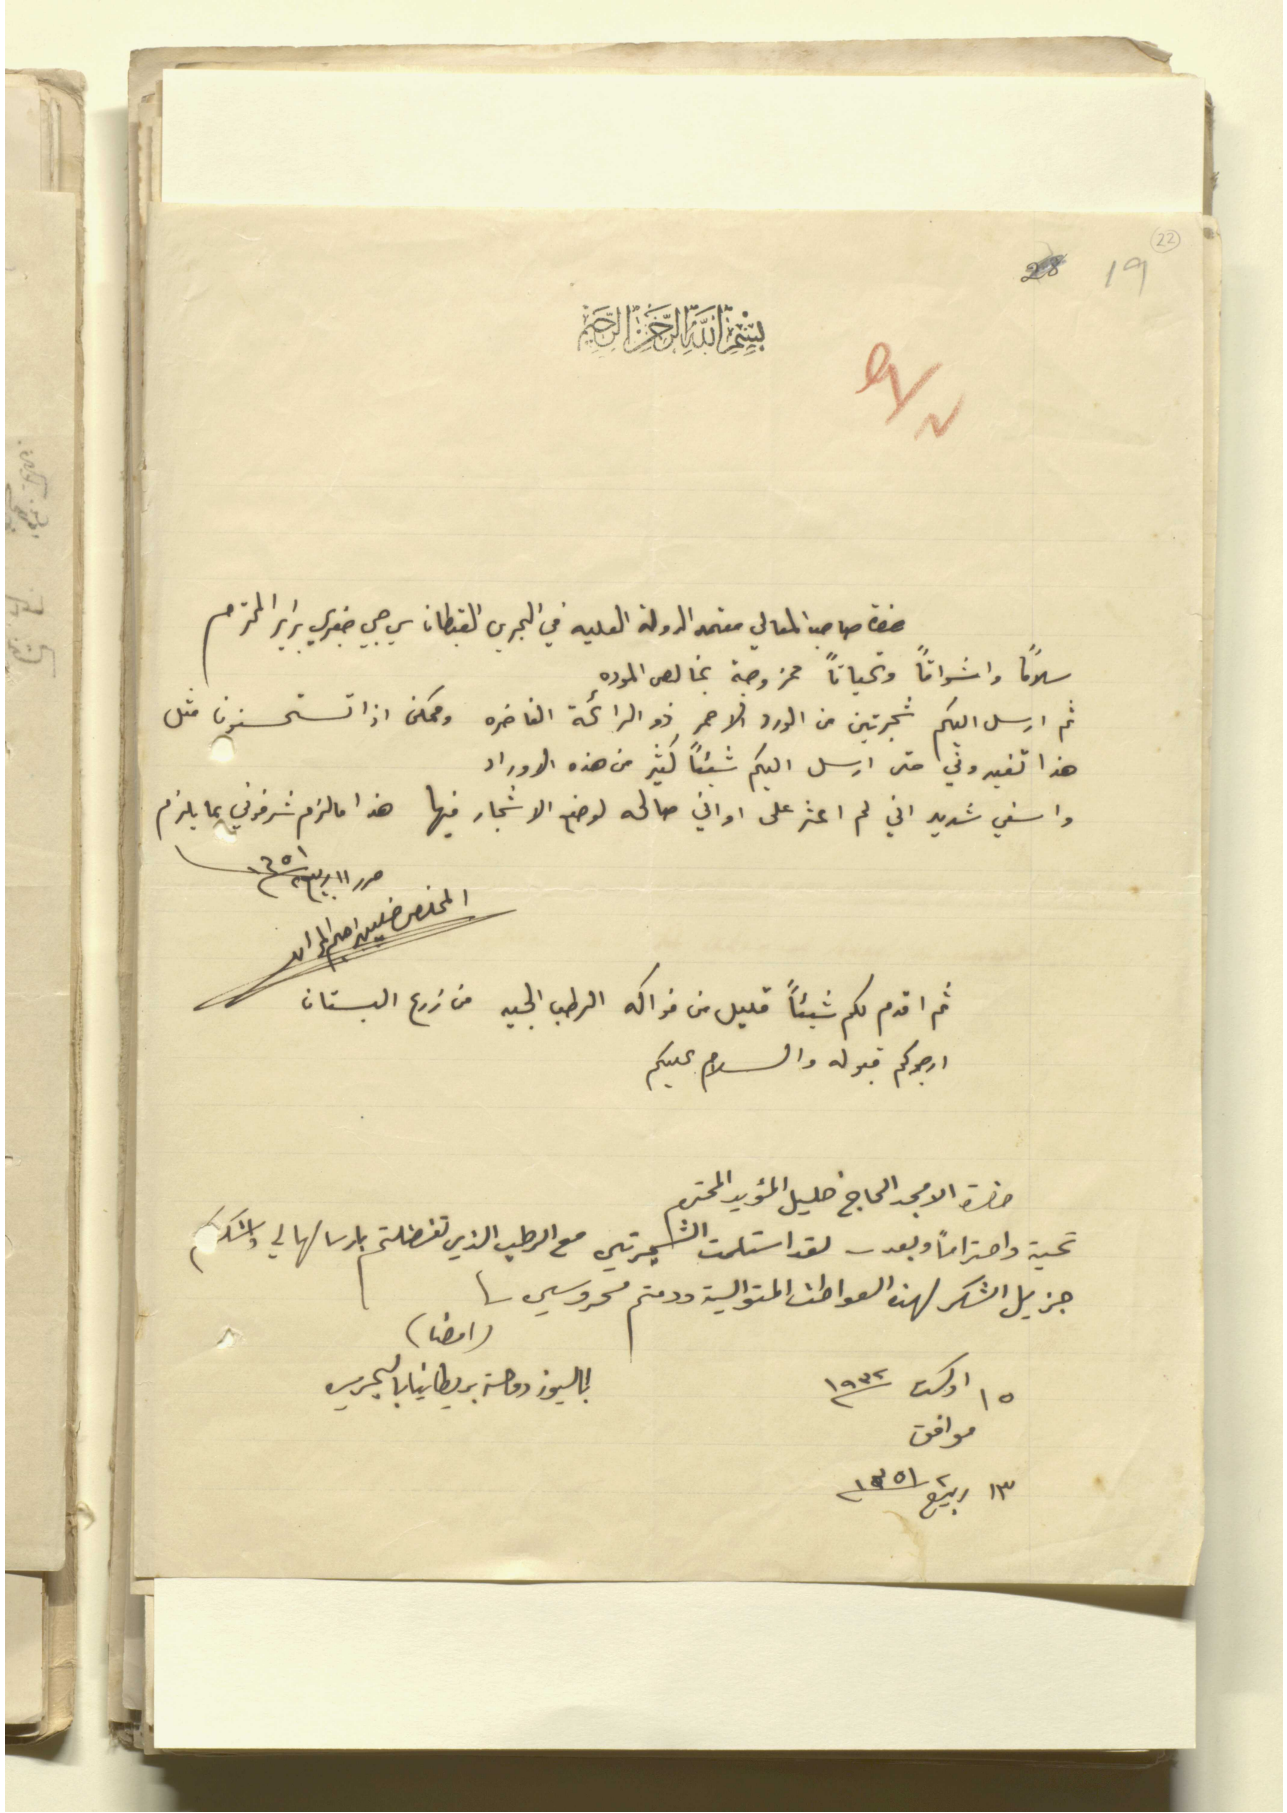 22
19
28
بسم الله الرحمن الرحيم
حضرة صاحب المعالي معتمد الدولة العليه في البحرين القبطان سي جي جفري برايز المحترم
سلاماً واشواقاً وتحياتاً ممزوجة بخالص الموده
ثم ارسل اليكم شجرتين من الورد الاحمر ذو الرائحة الفاخره وممكن اذا تستحسنون مثل
هذا تفيدوني حتى ارسل اليكم شيئاً كثير من هذه الاوراد
واسفي شديد اني لم اعثر على اواني صالحه لوضع الاشجار فيها هذا مالزم شرفوني بما يلزم
حرر ١١ ربيع ٢ ١٣٥١
المخلص خليل ابراهيم المؤيد
ثم اقدم لكم شيئاً قليل من فواكه الرطب الجيد من زرع البستان
ارجوكم قبوله والسلام عليكم
حضرة الامجد الحاج خليل المؤيد المحترم
تحية واحتراماً وبعد لقد استلمت الشجرتين مع الرطب الذي تفضلتم بارسالها لي واشكركم
جزيل الشكر لهذه العواطف المتوالية ودمتم محروسين
(امضا)
باليوز دولة بريطانيا بالبحرين
١٥ اوكست ١٩٣٢
موافق
١٣ ربيع ٢ ١٣٥١